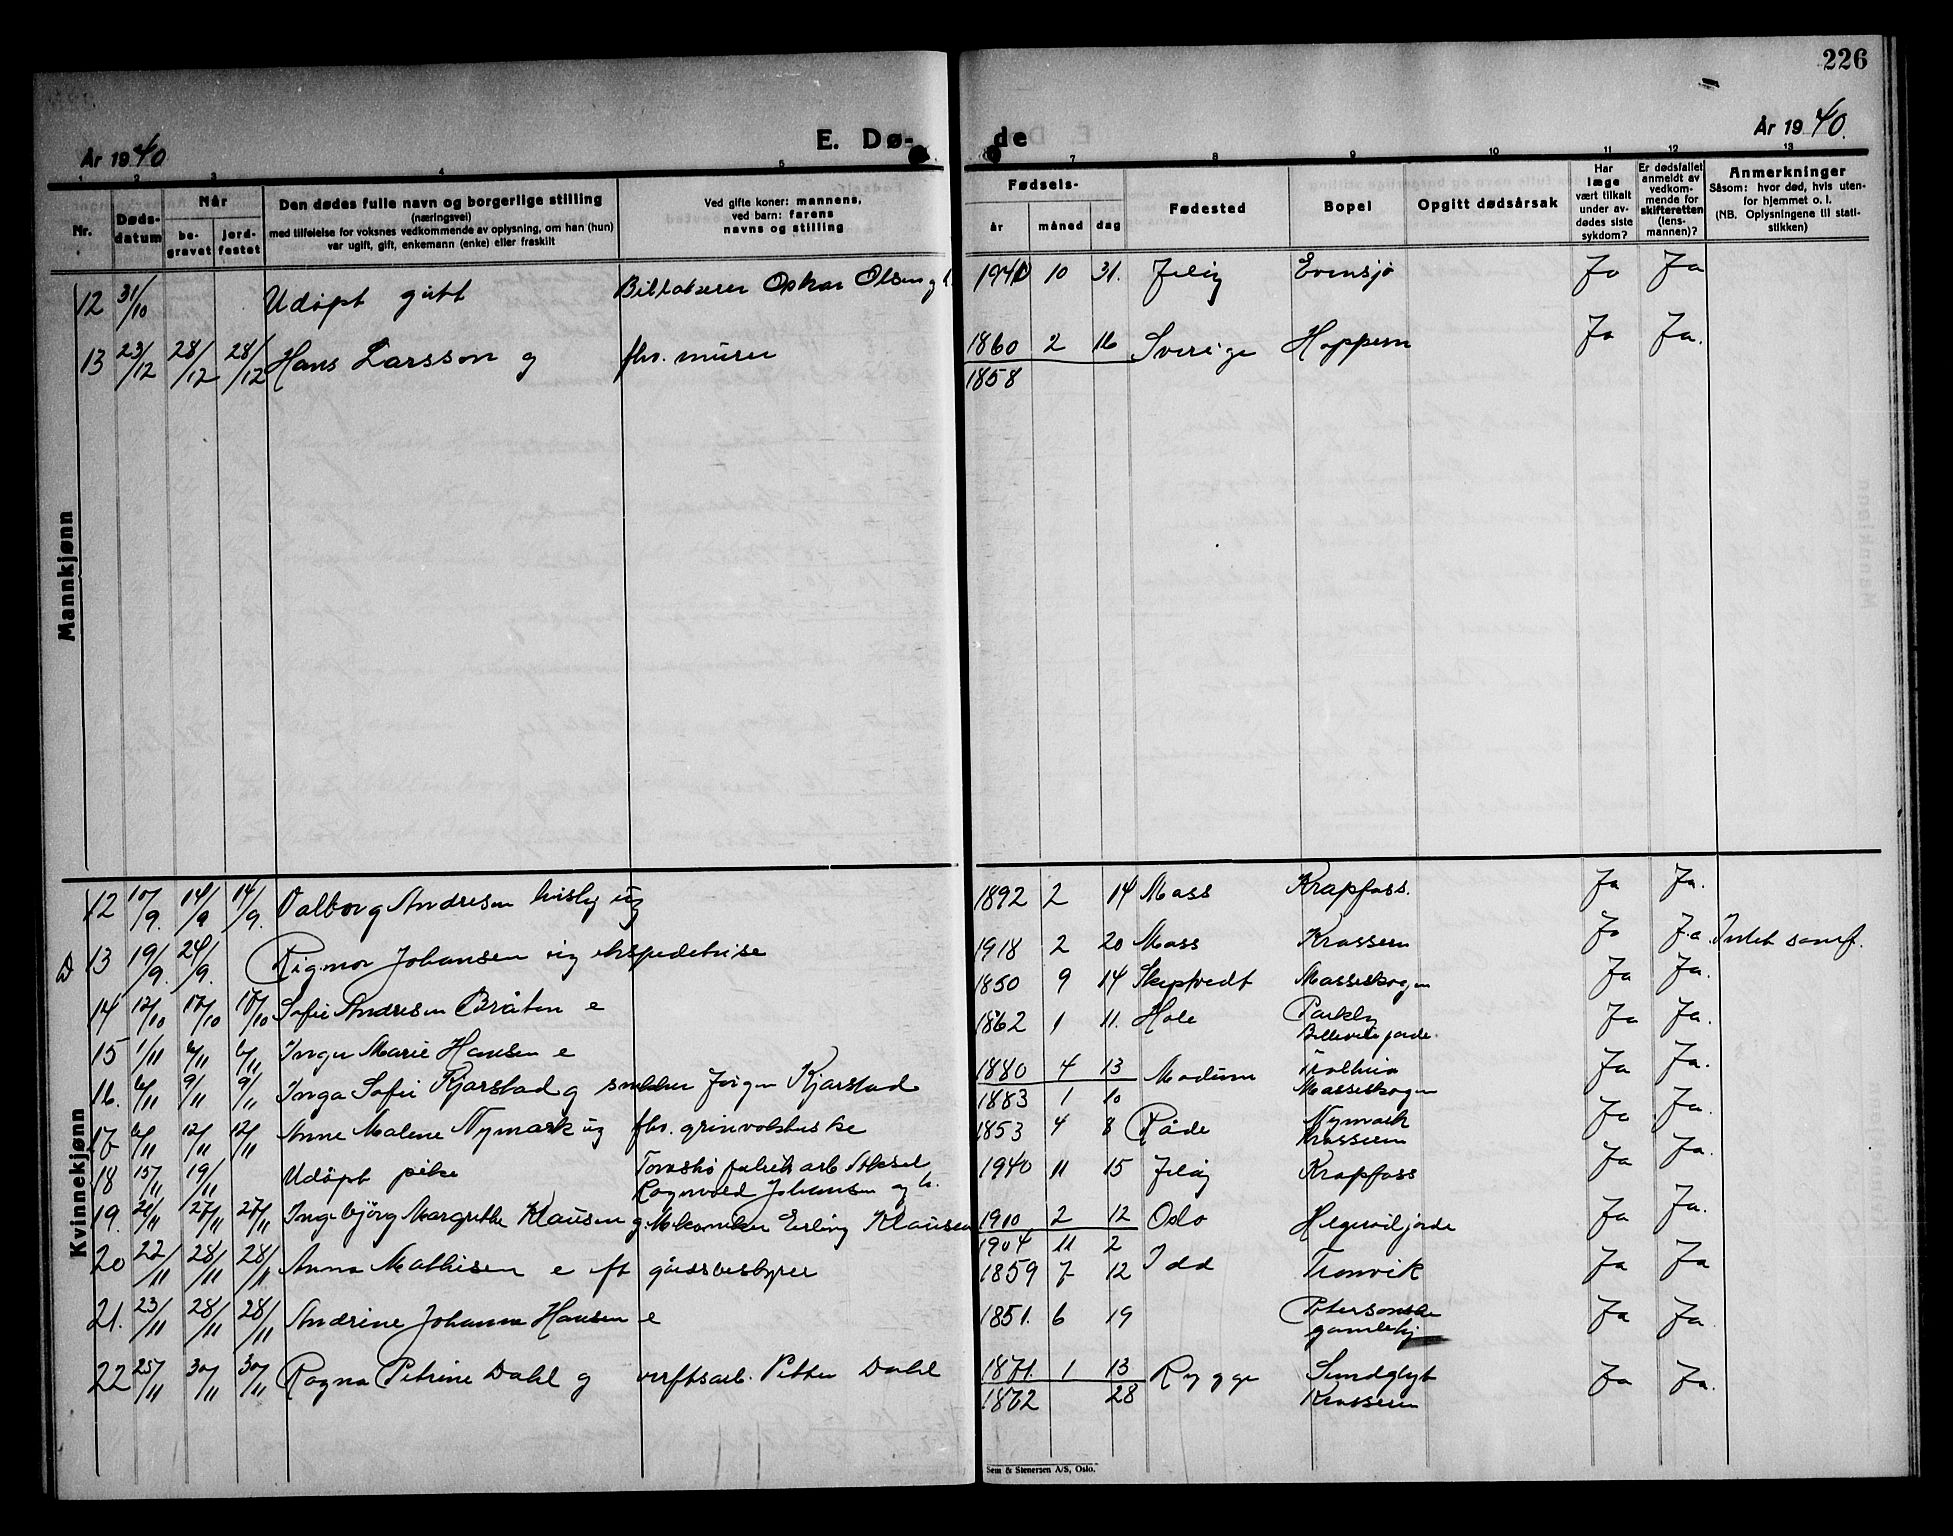 226
År 1940
E. Dø-
de
År 1940.
1 2 3 4 5 7 8 9 10 11 12 13
Nr.
Døds-
datum
Når
be-
gravet
jord-
festet
Den dødes fulle navn og borgerlige stilling
(næringsvei)
med tilføielse for voksnes vedkommende av oplysning, om han (hun)
var ugift, gift, enkemann (enke) eller fraskilt
Ved gifte koner: mannens,
ved barn: farens
navns og stilling
Fødsels-
år måned dag
Fødested
Bopel
Opgitt dødsårsak
Har
læge
vært tilkalt
under av-
dødes siste
sykdom?
Er dødsfallet
anmeldt av
vedkom-
mende for
skifteretten
(lens-
mannen)?
Anmerkninger
Såsom: hvor død, hvis uten-
for hjemmet o. l.
(NB. Oplysningene til stati-
stikken)
Mannkjønn
12 31/10 Udøpt gutt Oskar Olsen 1940 10 31. Jeløy Evensjø Ja Ja
13 23/12 28/12 28/12 Hans Larsson g fhv. murer 1860 2 16 Sverige Hoppern Ja Ja.
1858
Kvinnekjønn
12 10/9. 14/9 14/9. Valborg Andresen ug 1892 2 14 Moss Krapfoss. Ja Ja.
13 19/9. 24/9. Rigmor Johansen ug ekspeditrise 1918 2 20 Moss Krossern Ja Ja Intet samf.
14 12/10 17/10 17/10 Sofie Andresen Bråten e 1850 9 14 Skiptvedt Masseskogen Ja Ja.
15 1/11 6/11 6/11 Inger Marie Hansen e 1862 1 11. Hole Parkly Ja Ja.
16. 6/11 9/11 9/11 Inga Sofie Kjørstad g snekker Jørgen Kjørstad 1880 4 13 Modum Solhem Masseskogen Ja Ja.
1883 1 10
17 6/11 12/11 12/11 Anne Malene Nymark ug fhv. 1853 4 8 Råde Nymark Krossern Ja Ja.
18 15/11 19/11 Udøpt pike Ragnvald Johansen og h. 1940 11 15 Jeløy Krapfoss Ja Ja.
19. 21/11 27/11 27/11 Ingebjørg Margrethe Klausen g. Mekaniker Erling Klausen 1910 2 12 Oslo Ja Ja.
1904 11 2
20 22/11 28/11 28/11 Anna Mathisen e ft gårdsbestyrer 1859 7 12 Idd Tronvik Ja Ja
21. 23/11 28/11 28/11 Andrine Johanne Hansen e 1851. 6 19 Petersonske gamlehj Ja Ja
22 25/11 30/11 30/11 Ragna Petrine Dahl g verftsarb. Petter Dahl 1871. 1 13 Rygge Sundgløt Krossern Ja Ja.
1862 28
Sem & Stenersen A/S, Oslo.